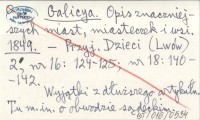 Galicya. Opis znaczniej-
szych miast, miasteczek i wsi.
1849. – Przyj. Dzieci (Lwów)
2° nr 16: 124-125; nr 18: 140-
-142.
Wyjątki z dłuższego artykułu.
Tu m.in. o obwodzie sądeckim